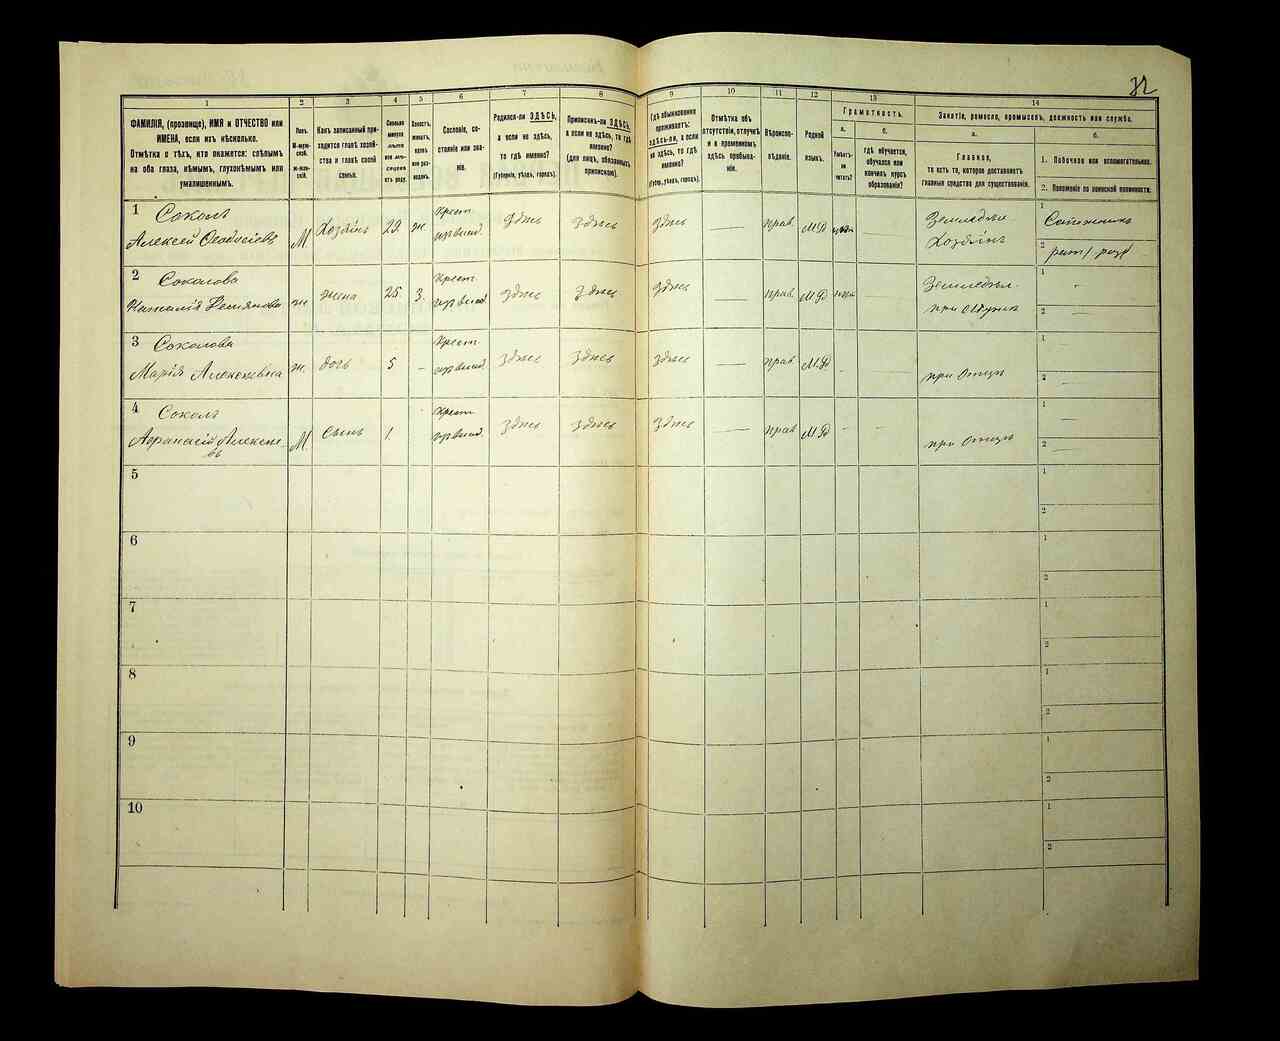 32
1
2
3
4
5
6
7
8
9
10
11
12
13
14
ФАМИЛІЯ, (прозвище), ИМЯ и ОТЧЕСТВО или
ИМЕНА, если ихъ нѣсколько.
Отмѣтка о тѣхъ, кто окажется: слѣпымъ
на оба глаза, нѣмымъ, глухонѣмымъ или
умалишеннымъ.
Полъ.
М-мужской.
Ж-женскій.
Какъ записанный приходится
главѣ хозяйства
и главѣ своей
семьи.
Сколько
минуло
лѣтъ
или мѣсяцевъ
отъ роду.
Холостъ,
женатъ,
вдовъ
или разведенъ.
Сословіе, состояніе
или званіе.
Родился-ли ЗДѢСЬ,
а если не здѣсь,
то гдѣ именно?
(Губернія, уѣздъ, городъ).
Приписанъ-ли ЗДѢСЬ,
а если не здѣсь, то гдѣ
именно?
(для лицъ, обязанныхъ
припискою).
Гдѣ обыкновенно
проживаетъ:
ЗДѢСЬ-ли, а если
не здѣсь, то гдѣ
именно?
(Губер., уѣздъ, городъ).
Отмѣтка объ
отсутствіи, отлучкѣ
и о временномъ
здѣсь пребываніи.
Вѣроисповѣданіе.
Родной
языкъ.
Грамотность.
а.
Умѣетъ-ли
читать?
б.
гдѣ обучается,
обучался или
кончилъ курсъ
образованія?
Занятіе, ремесло, промыселъ, должность или служба.
а.
Главное,
то есть то, которое доставляетъ
главныя средства для существованія.
б.
1. Побочное или вспомогательное.
2. Положеніе по воинской повинности.
1 Соколъ
Алексей Феодосіевъ М Хозяинъ 29. ж. Крест. здѣсь здѣсь здѣсь — прав. М.Р. — Земледѣл. Хозяинъ
1
2
2 Соколова
Наталія ж. жена 25. З. Крест. здѣсь здѣсь здѣсь — прав. М.Р. Земледѣл.
1
2
3 Соколова
Марія Алексеевна ж. дочь 5 – Крест. здѣсь здѣсь здѣсь — прав. М.Р. — при Отцѣ
1
2
4 Соколъ
Афанасій Алексеевъ М. сынъ 1. Крест. здѣсь здѣсь здѣсь — прав. М.Р. при Отцѣ
1
2
5
1
2
6
1
2
7
1
2
8
1
2
9
1
2
10
1
2